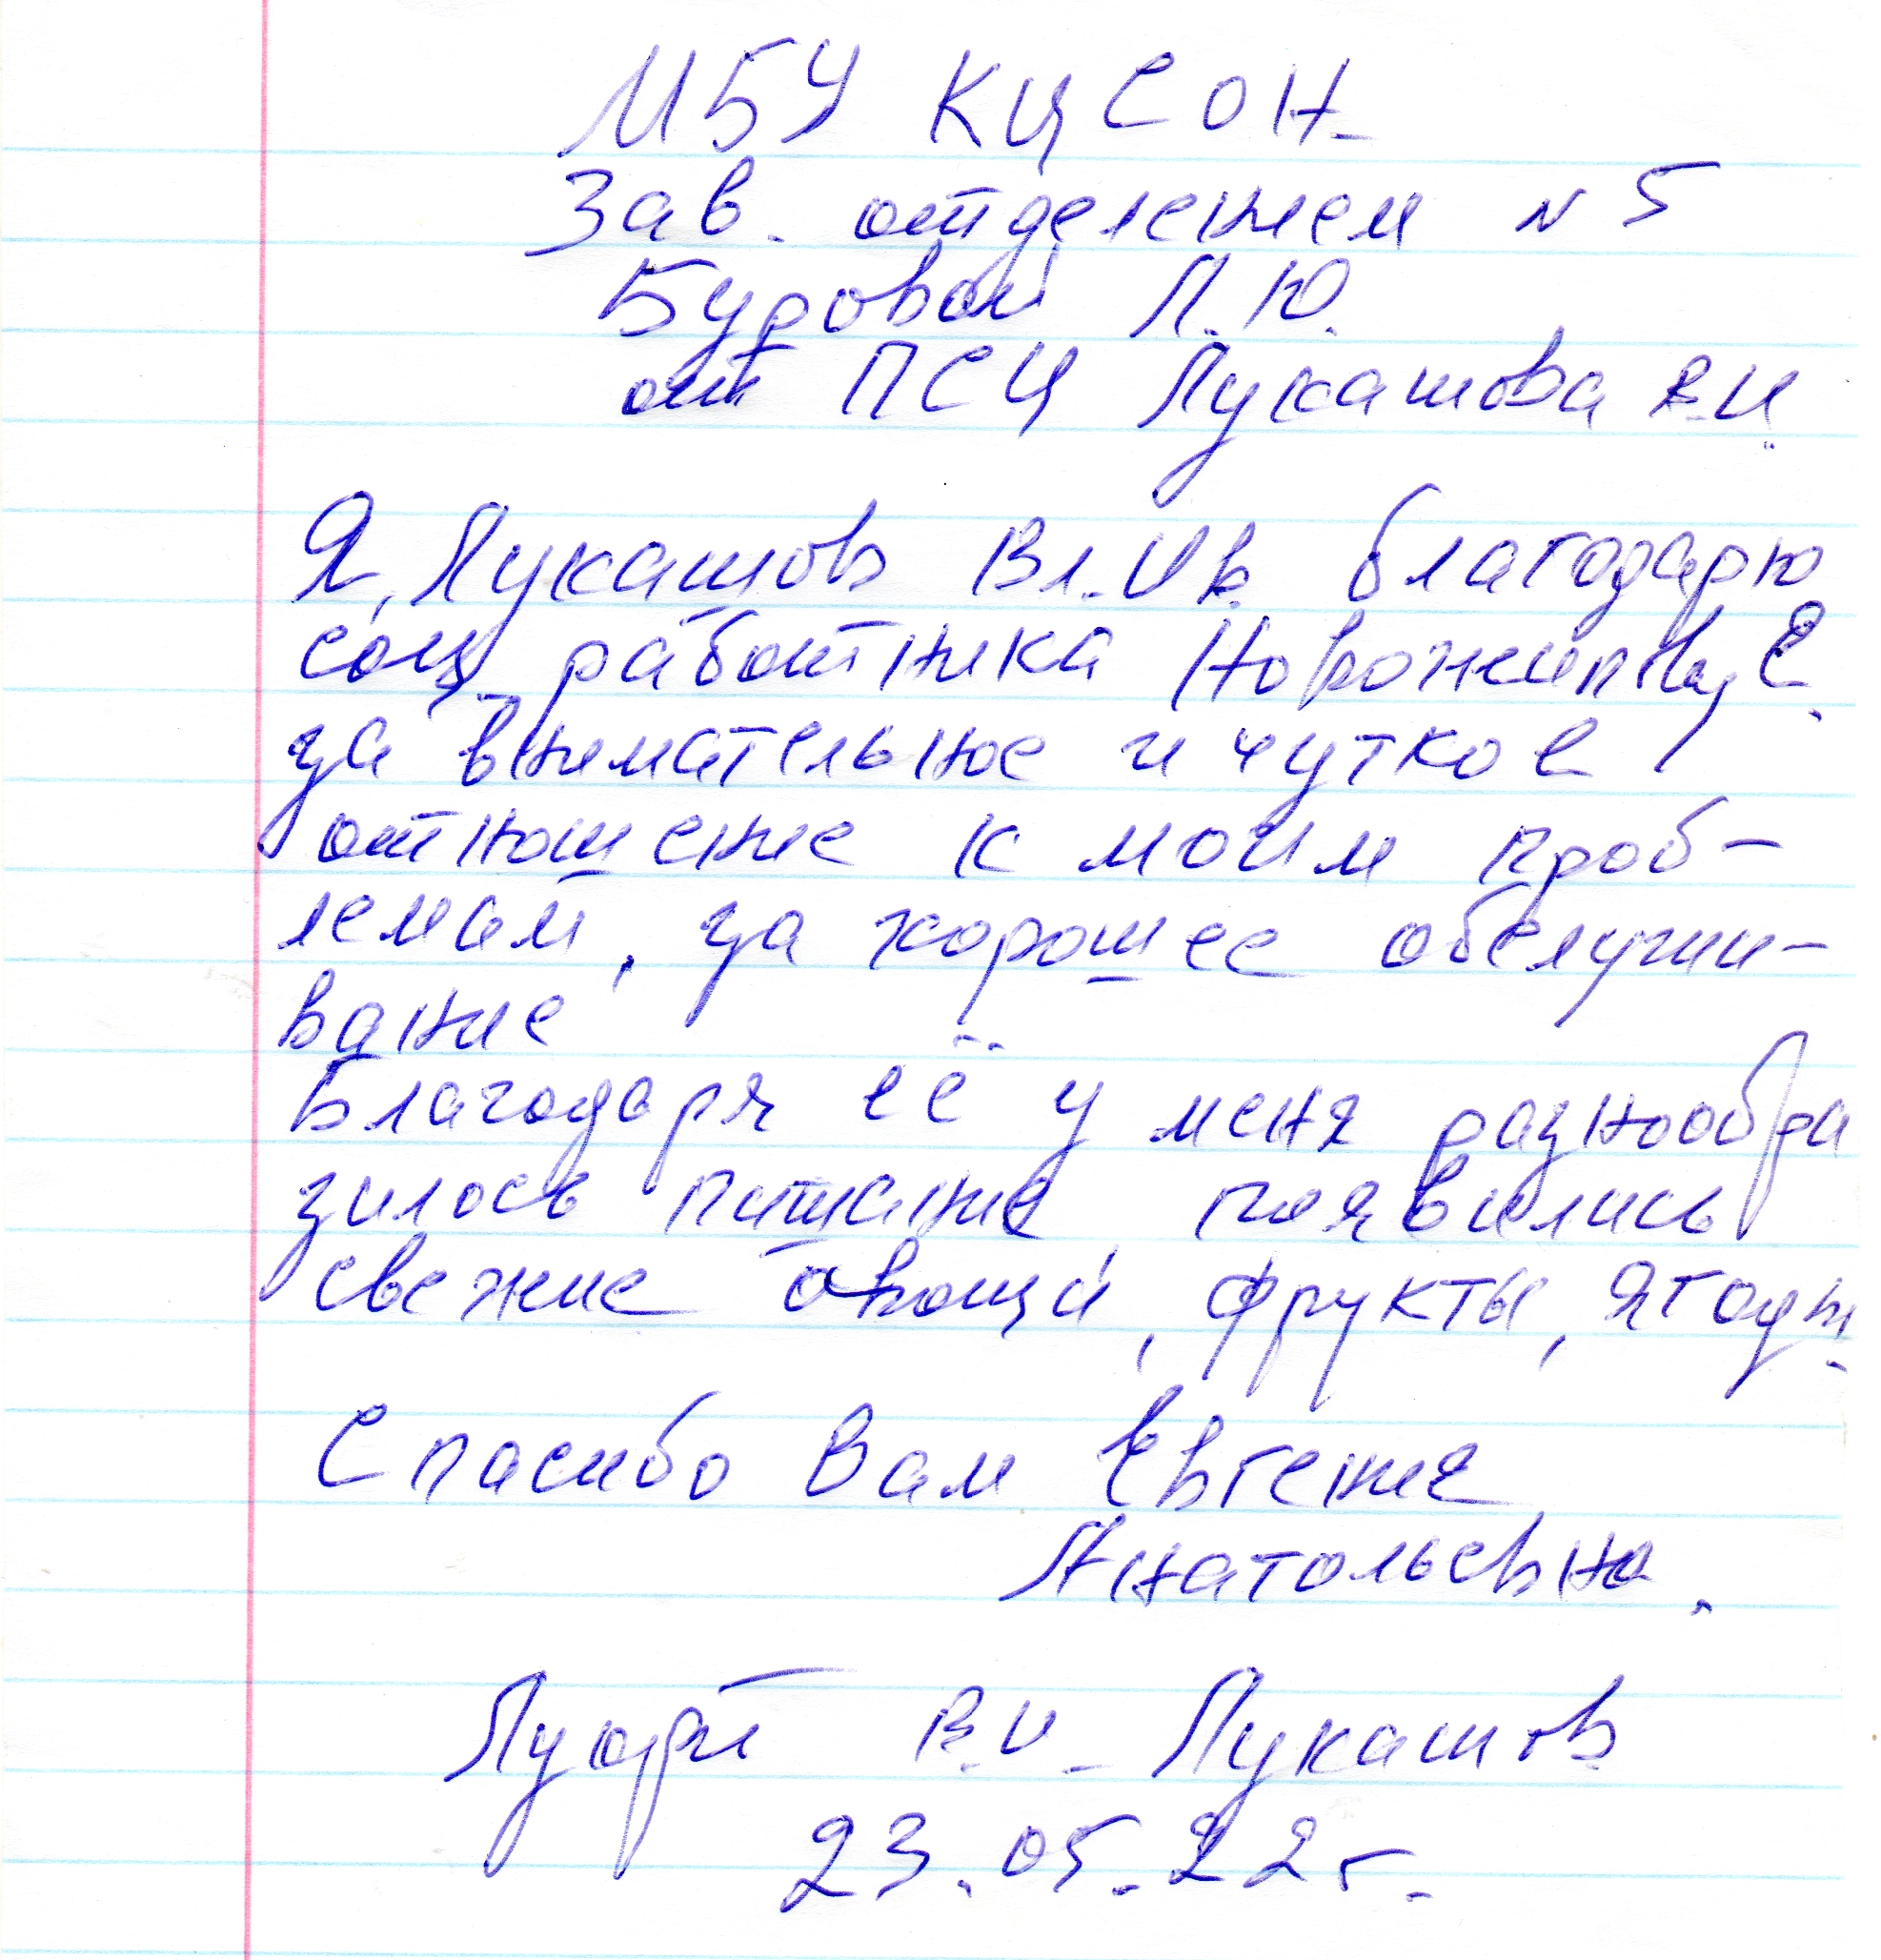 МБУ КЦСОН
Зав. отделением N 5
Буровой Л.Ю.
от ПСЦ Лукашова В.И.
Я, Лукашов Вл.Ив. благодарю
соц. работника Е.
за внимательное и чуткое
отношение к моим проб-
лемам, за хорошее обслужи-
вание
Благодаря её у меня разнообра
зилось питание, появились
свежие овощи, фрукты, ягоды.
Спасибо Вам Евгения
Анатольевна.
В.И. Лукашов
23.05.22г.